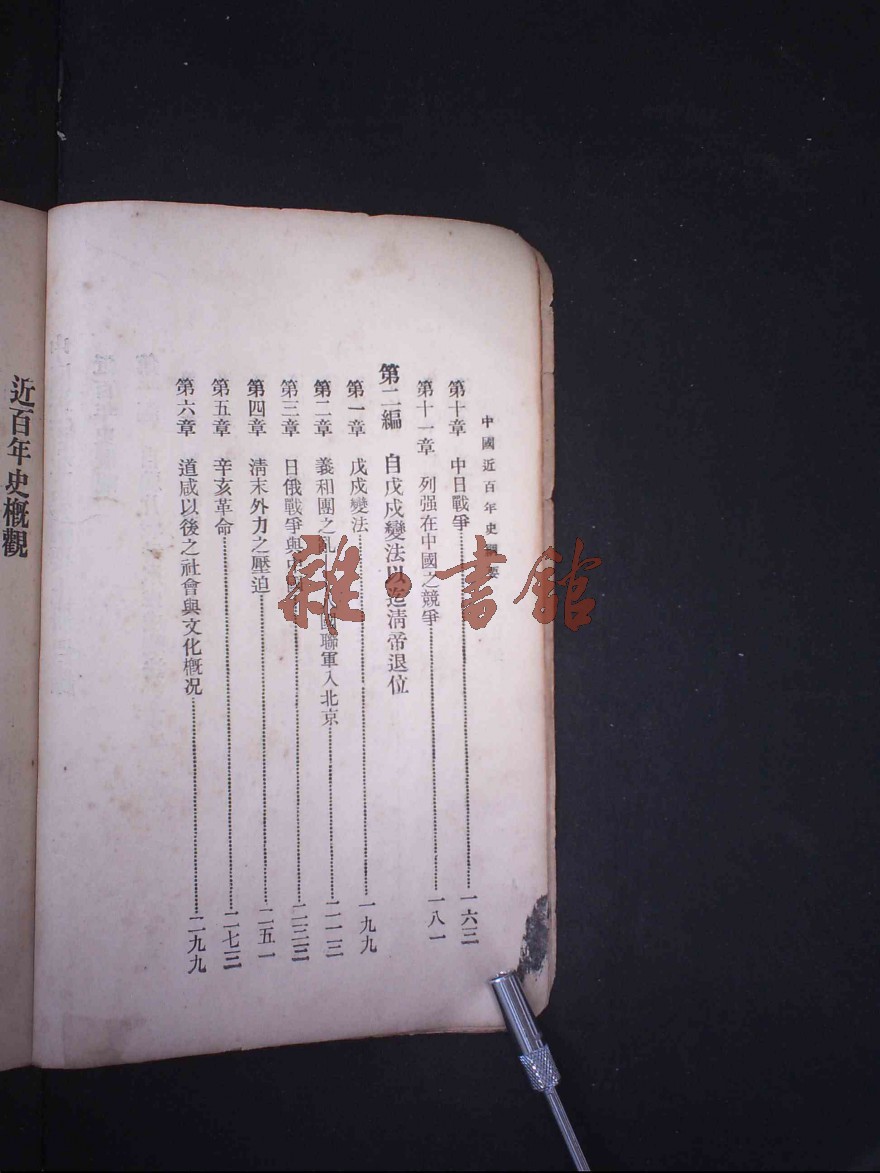 中國近百年史綱要
第十章 中日戰爭 一六三
第十一章 列强在中國之競爭 一八一
第二編 自戊戌變法以迄清帝退位
第一章 戊戌變法 一九九
第二章 義和團之亂 國聯軍入北京 二一三
第三章 日俄戰爭與中國
第四章 清末外力之壓迫 二五一
第五章 辛亥革命 二七三
第六章 道咸以後之社會與文化概况 二九九
近百年史概觀
雜·書館